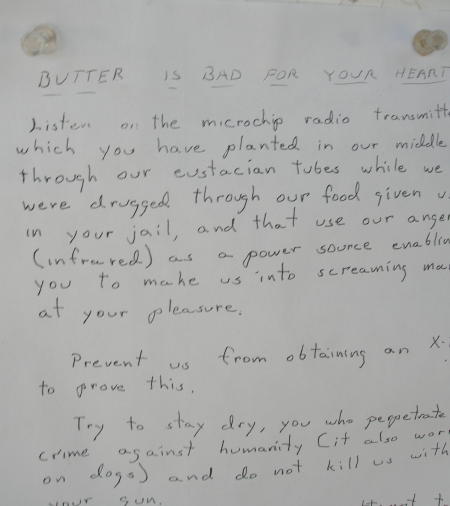 BUTTER IS BAD FOR YOUR HEART
Listen on the microchip radio transmitt
which you have planted in our middle
through our eustacian tubes while we
were drugged through our food given u
in your jail, and that use our anger
(infrared) as a power source enablin
you to make us into screaming ma
at your pleasure.
Prevent us from obtaining an X-
to prove this.
Try to stay dry, you who perpetrate
crime against humanity (it also wor
on dogs) and do not kill us with
your gun.